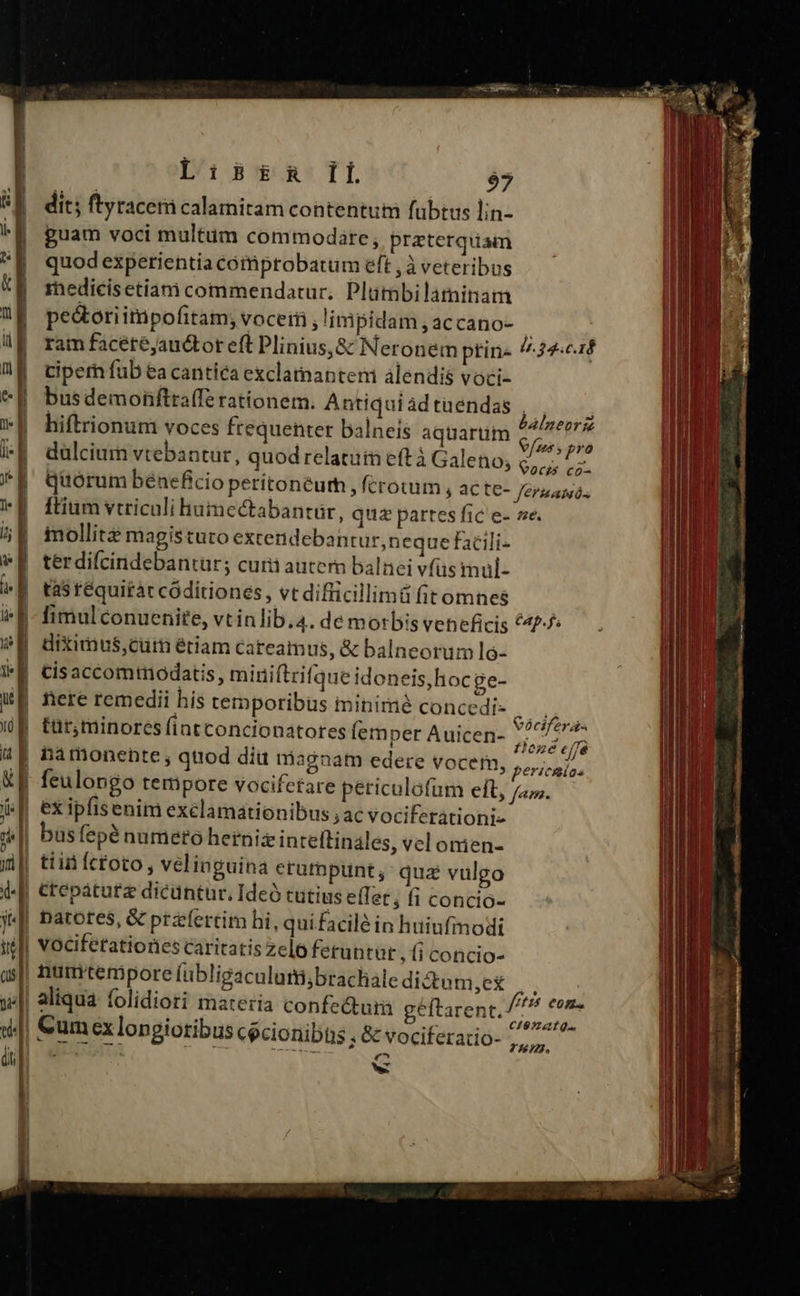 LIBER II. 97
dit; ſtyracem calamitam contentum ſubtus lin-
guam voci multum commodare, præterquam
quod experientia comprobatum eſt, à veteribus
medicis etiam commendatur. Plumbi laminam
pectori impoſitam, vocem, limpidam, ac cano-
ram facere, auctor eſt Plinius, & Neronem prin- l. 34. c. 18
cipem ſub ea cantica exclamantem alendis voci-
bus demonſtraſſe rationem. Antiqui ad tuendas
hiſtrionum voces frequenter balneis aquarum balneorū
dulcium vtebantur, quod relatum eſt à Galeno, vſus, pro
quorum beneficio peritonæum, ſcrotum, ac te- vocis cō-
ſtium vtriculi humectabantur, quæ partes ſic e- ſeruatiō-
mollitæ magis tuto extendebantur, neque facili- ne.
ter diſcindebantur; cum autem balnei vſus mul-
tas requirat cōditiones, vt difficillimū ſit omnes
ſimul conuenire, vt in lib. 4. de morbis veneficis cap. 5.
diximus, cum etiam careamus, & balneorum lo-
cis accommodatis, miniſtriſque idoneis, hoc ge-
nere remedii his temporibus minimè concedi-
tur, minores ſint concionatores ſemper Auicen- Vocifera-
na monente, quod diu magnam edere vocem, tioné eſſe
ſeu longo tempore vociferare periculoſum eſt, periculo-
ex ipſis enim exclamationibus, ac vociferationi- ſam.
bus ſepè numero herniæ inteſtinales, vel omen-
ti in ſcroto, vel inguina erumpunt, quæ vulgo
crepaturæ dicuntur. Ideò tutius eſſet, ſi concio-
natores, & præſertim hi, qui facilè in huiuſmodi
vociferationes caritatis zelo feruntur, ſi concio-
num tempore ſubligaculum, brachiale dictum, ex
aliqua ſolidiori materia confectum geſtarent.
Cum ex longioribus cōcionibus, & vociferatio-
G